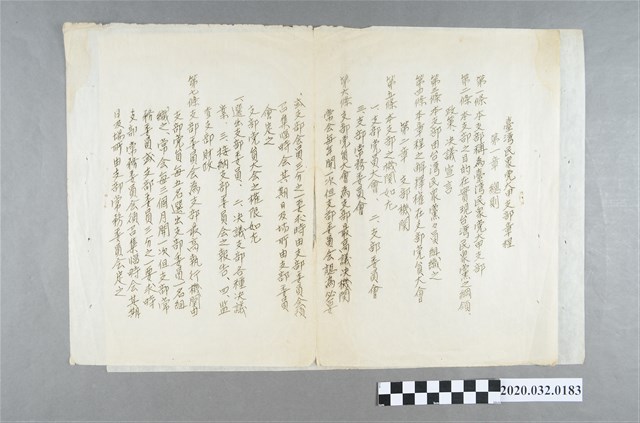 臺灣民眾黨○○支部章程
第一章 總則
第一條 本支部稱為臺灣民眾黨○○支部
第二條 本支部之目的在實現台灣民眾黨之綱領、
政策、決議、宣言
第三條 本支部由台灣民眾黨○○黨員組織之
第四條 本章程之解釋權在支部黨員大會
第二章 支部機關
第五條 本支部之機關如左
一、支部黨員大會、二、支部委員會
三、支部常務委員會
第六條 支部黨員大會為支部最高議決機關
常會每年開一次但支部委員會認為必要
或支部黨員三分之一要求時由支部委員會
召集臨時會其期日及場所由支部委員
會定之
支部黨員大會之權限如左
一、選任支部委員、二、決議支部各種決議
案、三、接納支部委員會之報告、四、監
督支部財政
第七條 支部委員會為支部最高執行機關由
支部黨員每五名選出支部委員一名組
織之、常會每三個月開一次但支部常
務委員或支部委員三分之一要求時
支部常務委員會須召集臨時會其期
日及場所由支部常務委員會定之
2020.032.0183